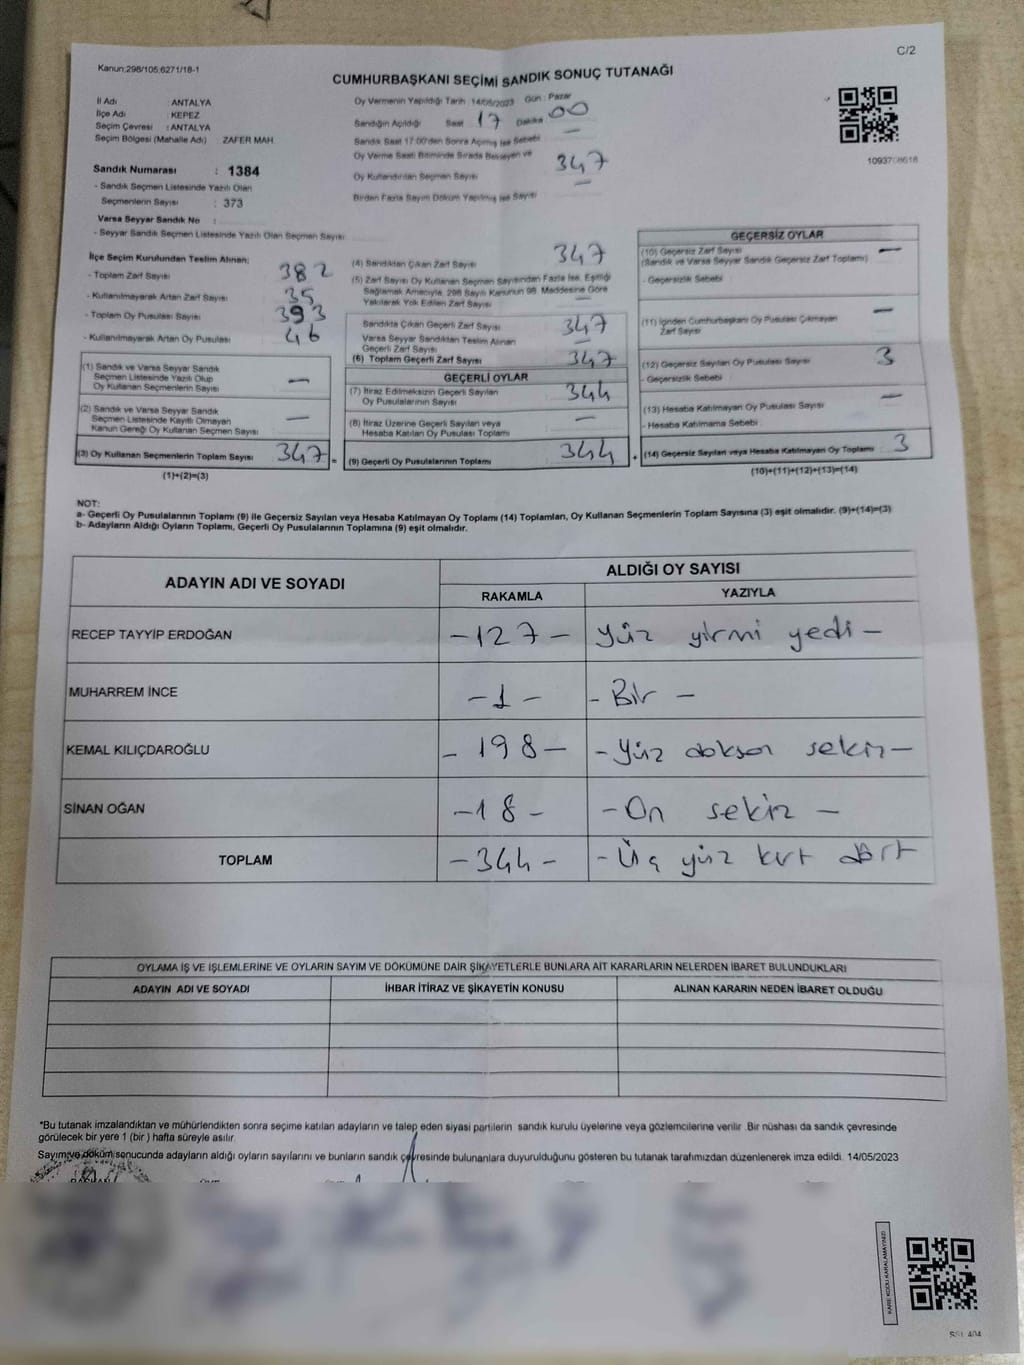 C/2
Kanun:298/105,6271/18-1
CUMHURBAŞKANI SEÇİMİ SANDIK SONUÇ TUTANAĞI
İl Adı : ANTALYA
İlçe Adı : KEPEZ
Seçim Çevresi : ANTALYA
Seçim Bölgesi (Mahalle Adı) ZAFER MAH.
Sandık Numarası : 1384
- Sandık Seçmen Listesinde Yazılı Olan
Seçmenlerin Sayısı : 373
Varsa Seyyar Sandık No :
- Seyyar Sandık Seçmen Listesinde Yazılı Olan Seçmen Sayısı
Oy Vermenin Yapıldığı Tarih :14/05/2023 Gün : Pazar
Sandığın Açıldığı Saat 17 Dakika 00
Sandık Saat 17.00'den Sonra Açılmış İse Sebebi —
Oy Verme Saati Bitiminde Sırada Bekleyen ve
Oy Kullandırılan Seçmen Sayısı 347
Birden Fazla Sayım Döküm Yapılmış İse Sayısı —
1093708618
İlçe Seçim Kurulundan Teslim Alınan:
- Toplam Zarf Sayısı 382
- Kullanılmayarak Artan Zarf Sayısı 35
- Toplam Oy Pusulası Sayısı 393
- Kullanılmayarak Artan Oy Pusulası 46
(1) Sandık ve Varsa Seyyar Sandık
Seçmen Listesinde Yazılı Olup
Oy Kullanan Seçmenlerin Sayısı —
(2) Sandık ve Varsa Seyyar Sandık
Seçmen Listesinde Kayıtlı Olmayan
Kanun Gereği Oy Kullanan Seçmen Sayısı —
(3) Oy Kullanan Seçmenlerin Toplam Sayısı 347 =
(1)+(2)=(3)
(4) Sandıktan Çıkan Zarf Sayısı 347
(5) Zarf Sayısı Oy Kullanan Seçmen Sayısından Fazla İse, Eşitliği
Sağlamak Amacıyla, 298 Sayılı Kanunun 98. Maddesine Göre
Yakılarak Yok Edilen Zarf Sayısı —
Sandıkta Çıkan Geçerli Zarf Sayısı 347
Varsa Seyyar Sandıktan Teslim Alınan
Geçerli Zarf Sayısı —
(6) Toplam Geçerli Zarf Sayısı 347
GEÇERLİ OYLAR
(7) İtiraz Edilmeksizin Geçerli Sayılan
Oy Pusulalarının Sayısı 344
(8) İtiraz Üzerine Geçerli Sayılan veya
Hesaba Katılan Oy Pusulası Toplamı —
(9) Geçerli Oy Pusulalarının Toplamı 344 +
GEÇERSİZ OYLAR
(10) Geçersiz Zarf Sayısı —
(Sandık ve Varsa Seyyar Sandık Geçersiz Zarf Toplamı)
- Geçersizlik Sebebi
(11) İçinden Cumhurbaşkanı Oy Pusulası Çıkmayan —
Zarf Sayısı
(12) Geçersiz Sayılan Oy Pusulası Sayısı 3
- Geçersizlik Sebebi
(13) Hesaba Katılmayan Oy Pusulası Sayısı —
- Hesaba Katılmama Sebebi
(14) Geçersiz Sayılan veya Hesaba Katılmayan Oy Toplamı : 3
(10)+(11)+(12)+(13)=(14)
NOT:
a- Geçerli Oy Pusulalarının Toplamı (9) ile Geçersiz Sayılan veya Hesaba Katılmayan Oy Toplamı (14) Toplamları, Oy Kullanan Seçmenlerin Toplam Sayısına (3) eşit olmalıdır. (9)+(14)=(3)
b- Adayların Aldığı Oyların Toplamı, Geçerli Oy Pusulalarının Toplamına (9) eşit olmalıdır.
ADAYIN ADI VE SOYADI
ALDIĞI OY SAYISI
RAKAMLA YAZIYLA
RECEP TAYYİP ERDOĞAN -127- yüz yirmi yedi -
MUHARREM İNCE -1- - Bir -
KEMAL KILIÇDAROĞLU -198- -Yüz doksan sekiz-
SİNAN OĞAN -18- -On sekiz -
TOPLAM -344- -Üç yüz kırk dört
OYLAMA İŞ VE İŞLEMLERİNE VE OYLARIN SAYIM VE DÖKÜMÜNE DAİR ŞİKAYETLERLE BUNLARA AİT KARARLARIN NELERDEN İBARET BULUNDUKLARI
ADAYIN ADI VE SOYADI İHBAR İTİRAZ VE ŞİKAYETİN KONUSU ALINAN KARARIN NEDEN İBARET OLDUĞU
*Bu tutanak imzalandıktan ve mühürlendikten sonra seçime katılan adayların ve talep eden siyasi partilerin sandık kurulu üyelerine veya gözlemcilerine verilir .Bir nüshası da sandık çevresinde
görülecek bir yere 1 (bir ) hafta süreyle asılır.
Sayım ve döküm sonucunda adayların aldığı oyların sayılarını ve bunların sandık çevresinde bulunanlara duyurulduğunu gösteren bu tutanak tarafımızdan düzenlenerek imza edildi. 14/05/2023
BAŞKAN
KARE KODU KARALAMAYINIZ!